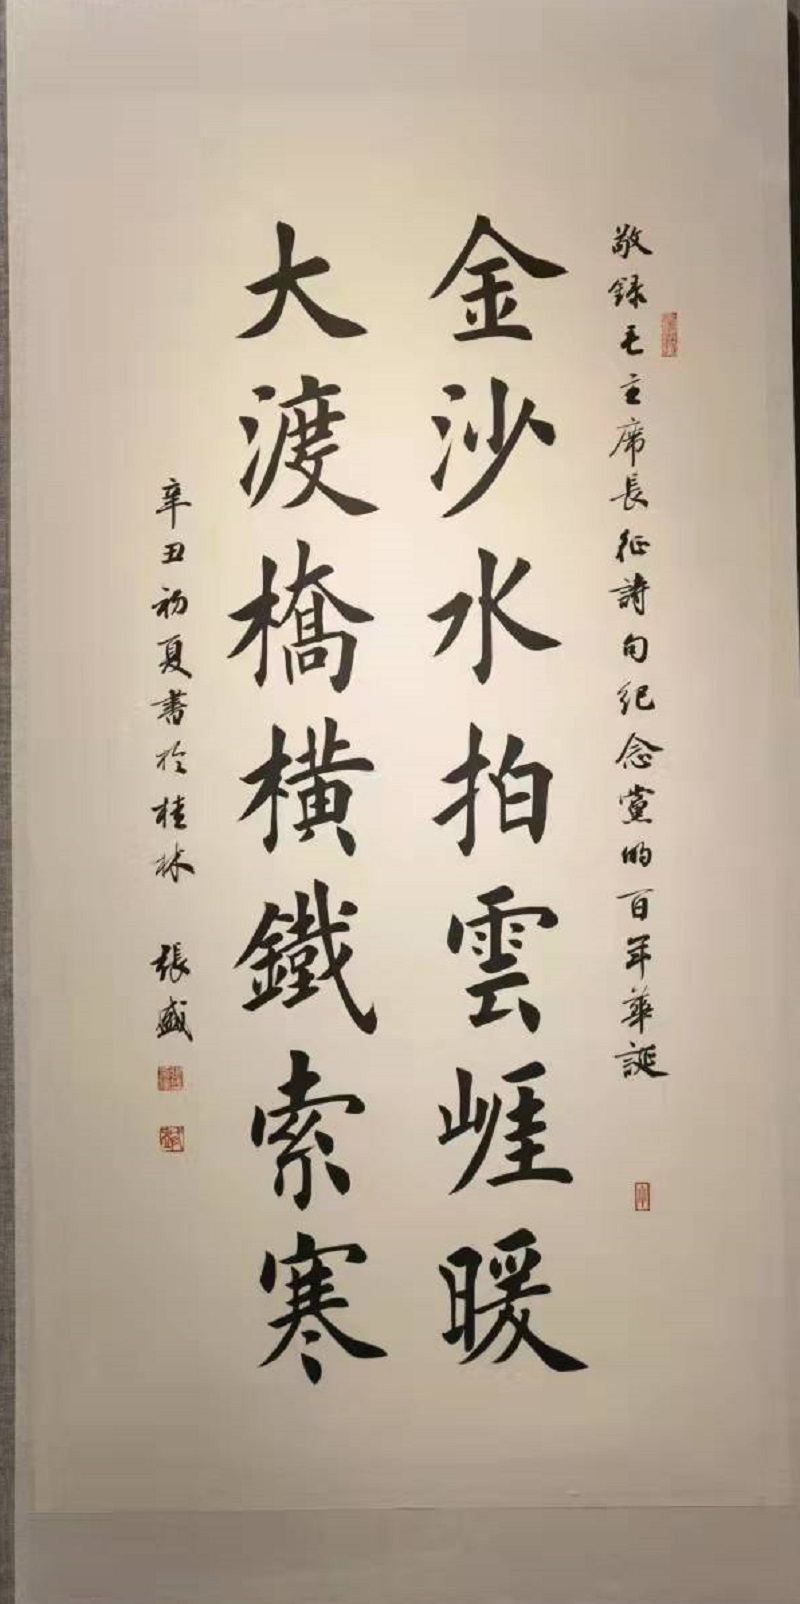 敬録毛主席長征詩句紀念黨的百年華誕
金沙水拍雲崕暖
大渡橋橫鐵索寒
辛丑初夏書於桂林 張盛